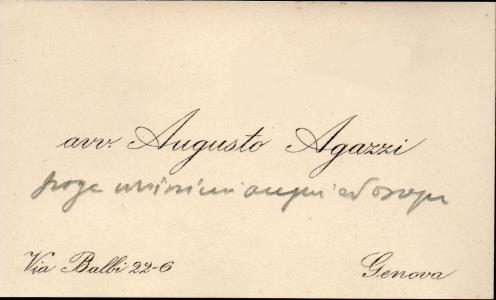 avv. Augusto Agazzi
porge vivissimi auguri ed ossequi
Via Balbi 22-6
Genova